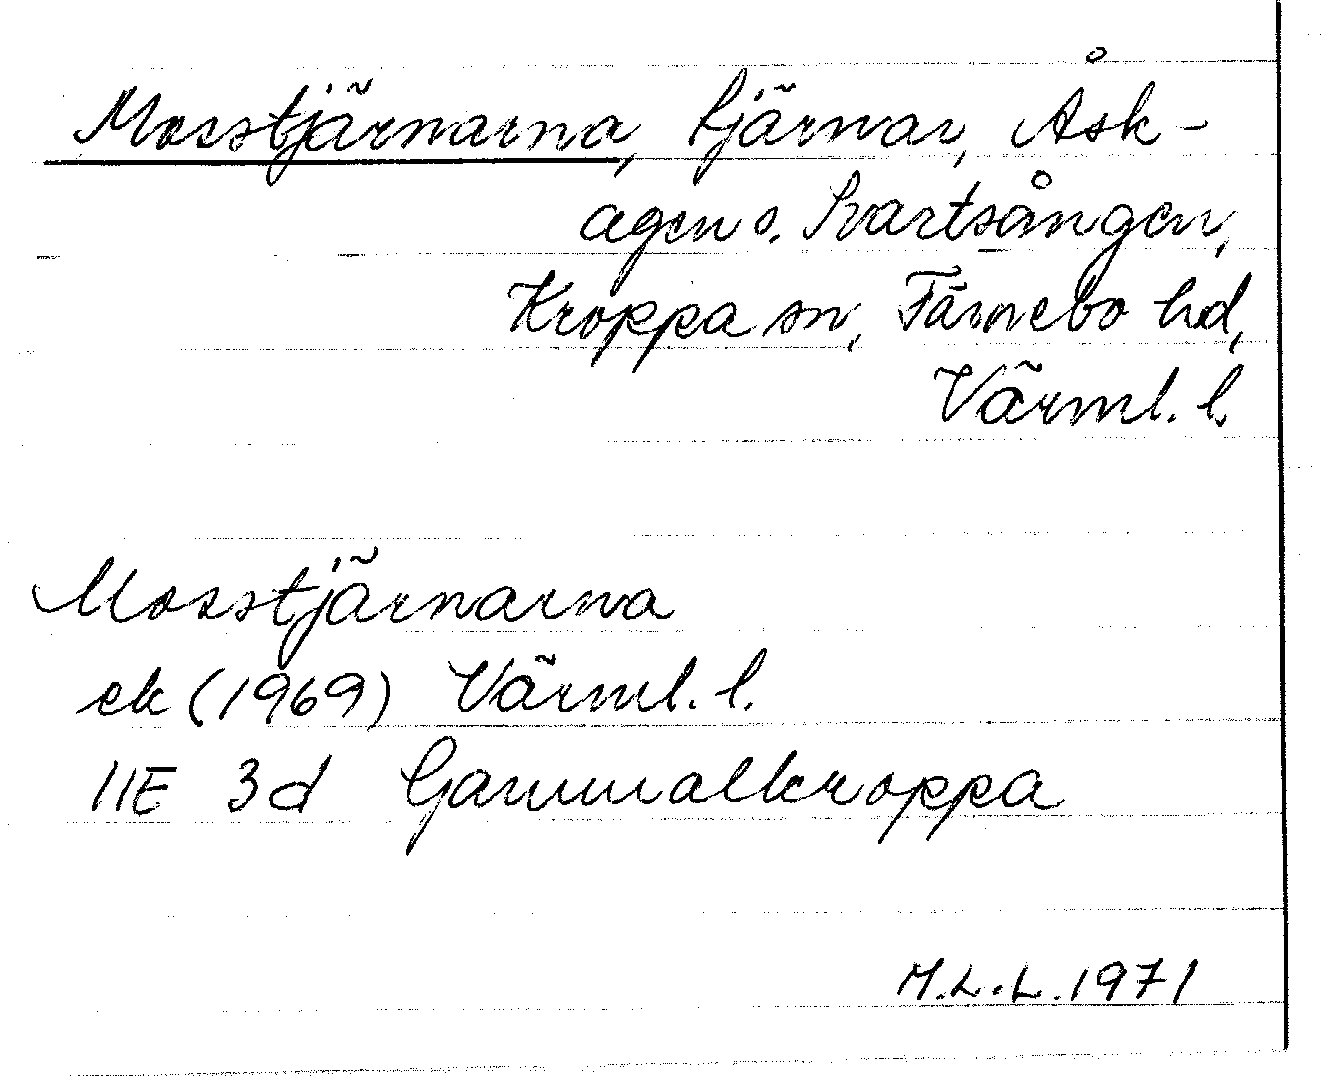 Mosstjärnarna, tjärnar, Åsk-
agen o. Svartsången,
Kroppa sn, Färnebo hd,
Värml. l.
Mosstjärnarna
ek (1969) Värml. l.
11E 3d Gammalkroppa
M.L.L. 1971